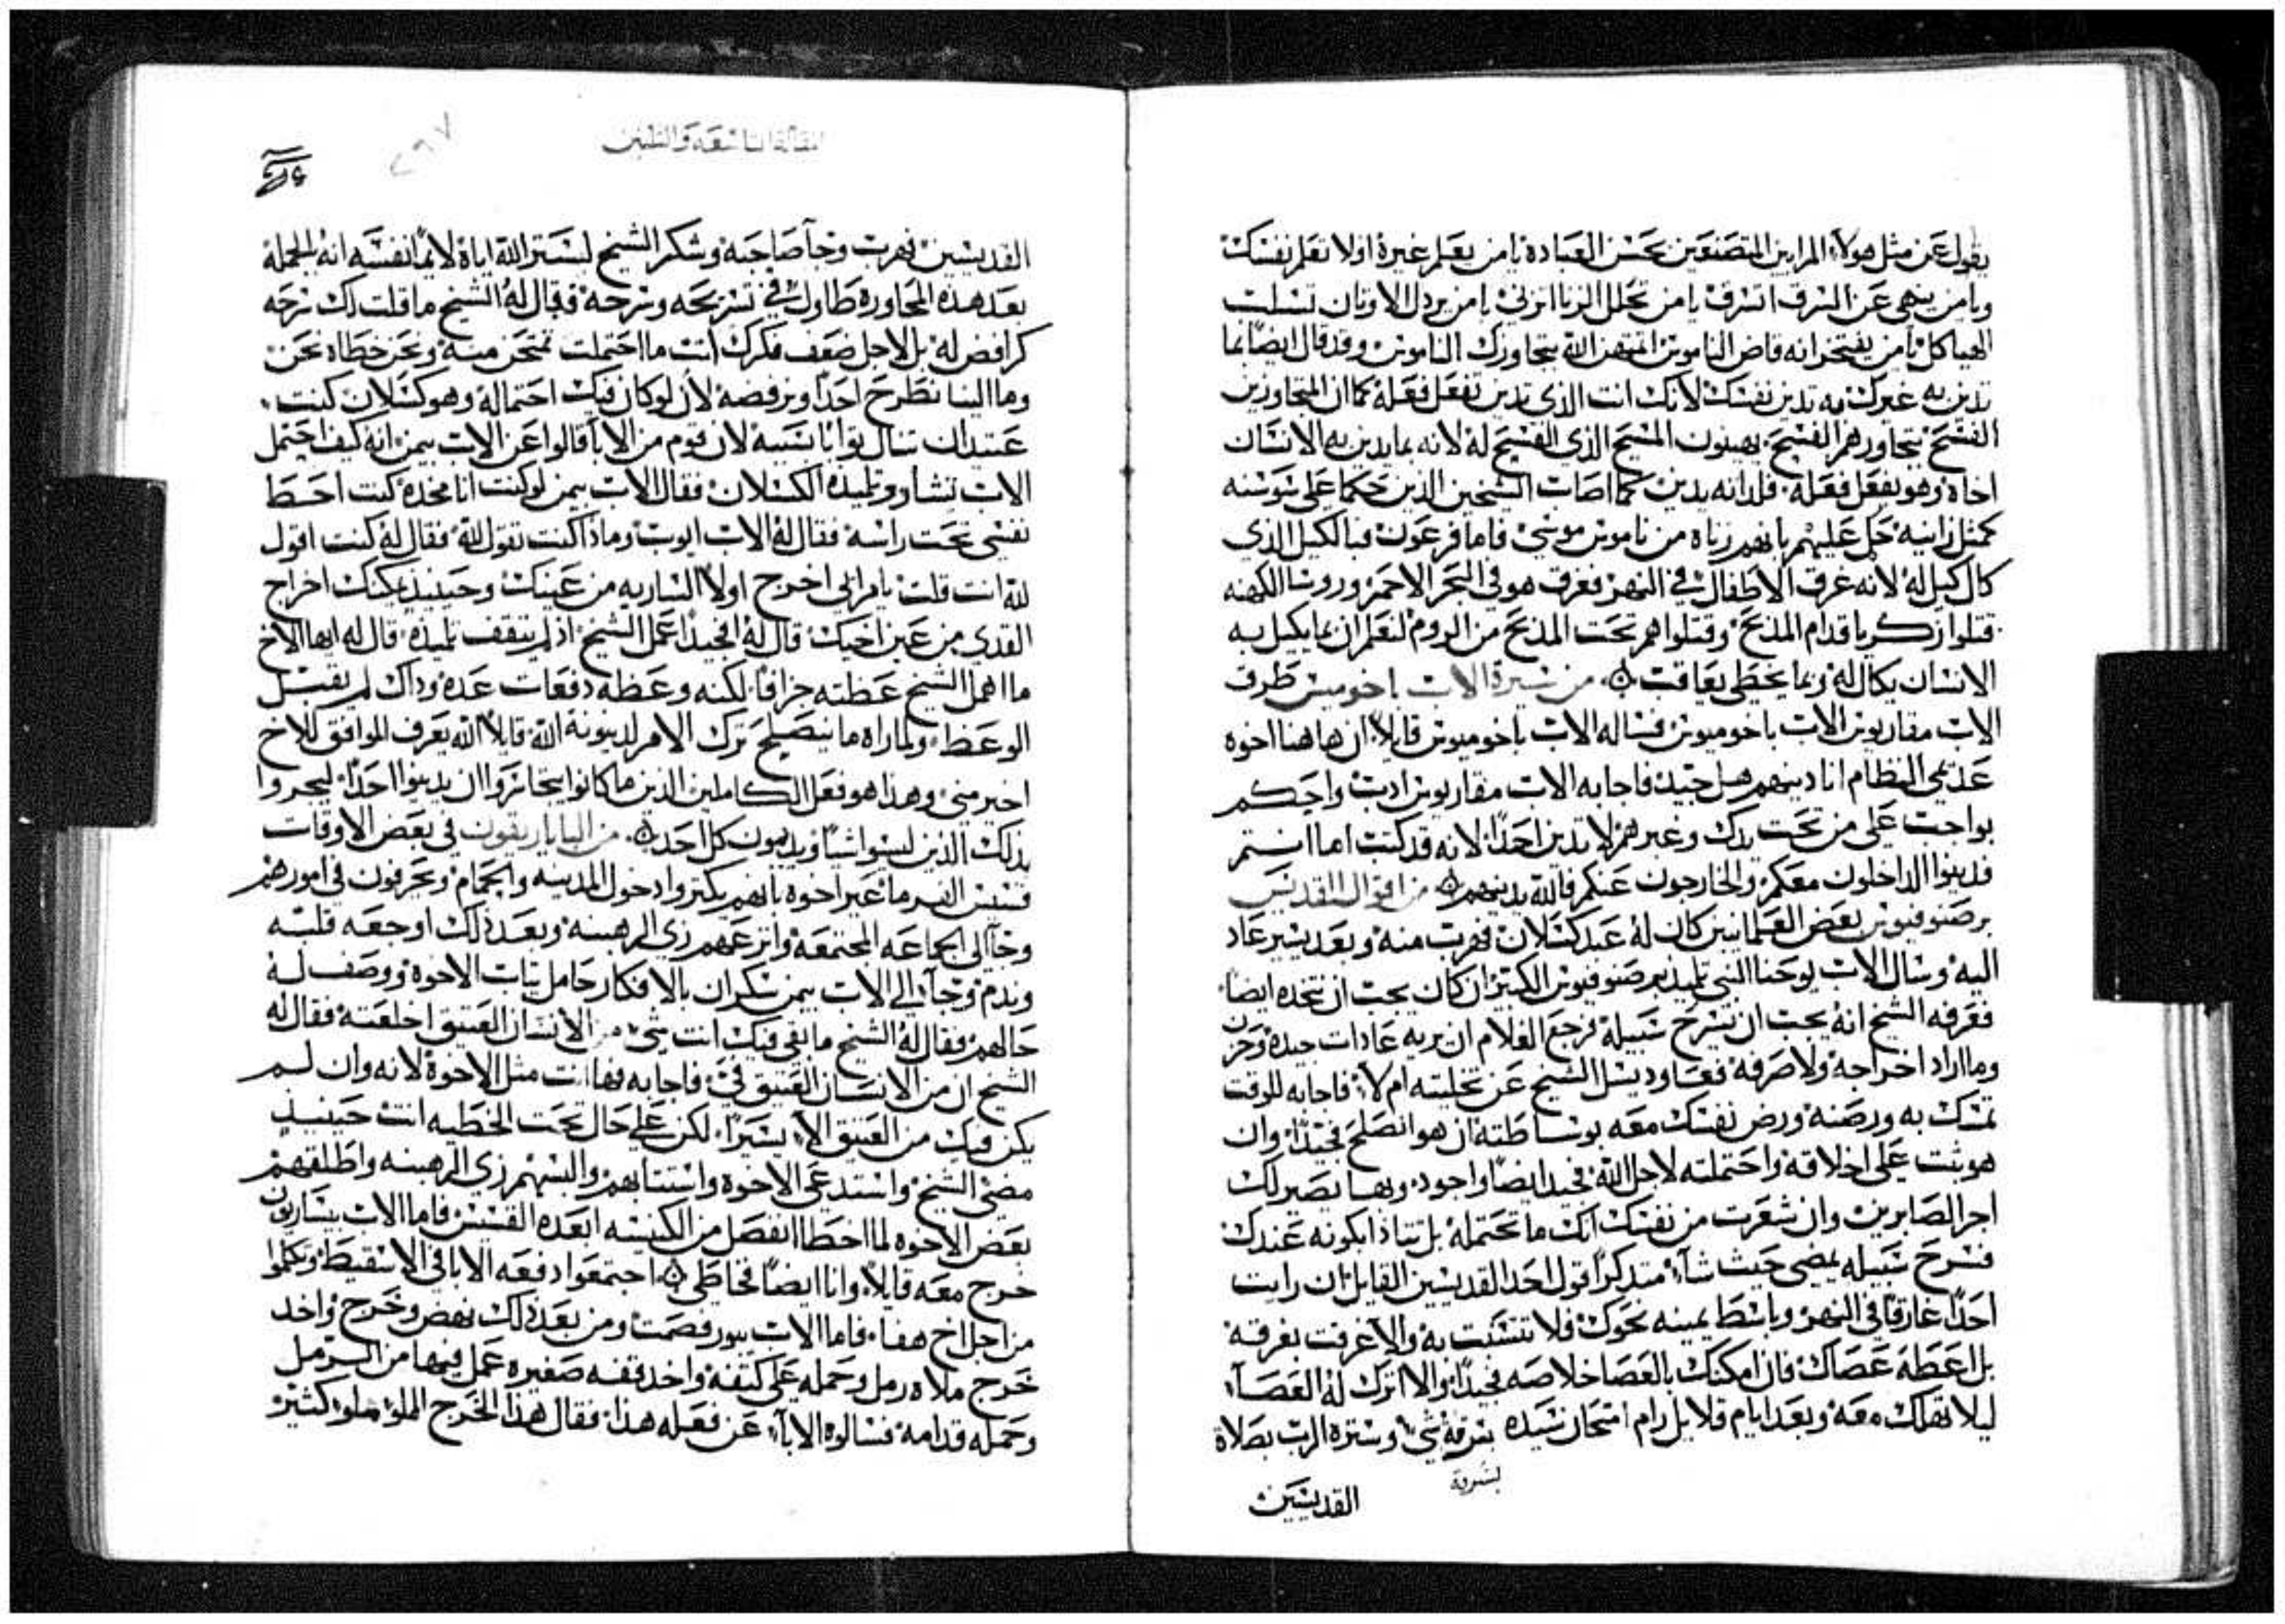 يقول عن مثل هولاء المرايين المتصنعين بحسن العباده يامن يعلم غيره اولا تعلم نفسك
ويامن ينهي عن السرق اتسرق يامن تحلل الزنا اتزني يامن يردل الاوثان تسلب
الهياكل يامن يفتخر انه قاض الناموس اتهين الله بتجاوزك الناموس وقد قال ايضا بما
تدين به غيرك به تدين نفسك لانك انت الذي تدين تفعل فعله كما ان المتجاوزين
الفسح بتجاوزهم الفسح يهينون المسيح الذي الفسح له لانه بما يدين به الانسان
اخاه وهو يفعل فعله فلذاته يدين كما اصاب الشيخين الذين حكما على سوسنه
كمثل زانيه حل عليهم بانهم زناه من ناموس موسي فاما فرعون فبالكيل الذي
كال كيل له لانه غرق الاطفال في النهر فغرق هو في البحر الاحمر وروسا الكهنه
قتلوا زكريا قدام المذبح وقتلوا هم تحت المذبح من الروم لنعلم ان بما يكيل به
الانسان يكال له وبما يخطي يعاقب من سيرة الاب باخوميس طرق
الاب مقاريوس الاب باخوميوس فساله الاب باخوميوس قايلا ان هاهنا اخوه
عدمي النظام انا دينهم هل جيد فاجابه الاب مقاريوس ادب واحكم
بواجب على من تحت يدك وغيرهم لا تدين احدا لانه قد كتب اما انتم
فدينوا الداخلون معكم والخارجون عنكم فالله يدينهم من اقوال القديس
برصنوفيوس بعض العلمانيين كان له عبد كسلان فهرب منه وبعد يسير عاد
اليه وسال الاب يوحنا النبي تلميذ برصنوفيوس الكبير ان كان يجب ان نتخذه ايضا
فعرفه الشيخ انه يجب ان يسرح سبيله فرجع الغلام ان يريه عادات جيده وحزن
وما اراد اخراجه ولا صرفه فعاود يسل الشيخ عن تخليته ام لا فاجابه للوقت
تمسك به ورضه ورض نفسك معه بوساطته ان هو انصلح فجيدا وان
هو ثبت على اخلاقه واحتملته لاجل الله فجيد ايضا واجود وبها يصير لك
اجر الصابرين وان شعرت من نفسك انك ما تحتمله بل تتاذا بكونه عندك
فسرح سبيله يمضي حيث شاء متذكرا قول احد القديسين القايل ان رايت
احدا غارقا في النهر وباسط يمينه نحوك فلا تتشبث به والا غرقت بغرقه
بل اعطه عصاك فان امكنك بالعصا خلاصه فجيدا والا اترك له العصاء
ليلا تهلك معه وبعد ايام قلايل رام امتحان سيده بسرقة شي وستره الرب بصلاة
بسرقة
القديسين
المقالة التاسعة والثلثين
القديسين فهرب وجا صاحبه وشكر الشيخ لستر الله اياه لايما نفسه انه بالجمله
بعد هذه المحاوره طاول في تسريحه وسرحه فقال له الشيخ ما قلت لك سرحه
كرافض له بل لاجل ضعف فكرك انت ما احتملت تمتحن منه ونحن خطاه نحن
وما الينا نطرح احدا ونرفضه لان لو كان فيك احتماله وهو كسلان كنت
عتيدان تنال ثوابا بسببه لان قوم من الابا قالوا عن الاب بيمن انه كيف احتمل
الاب نشارو تلميذه الكسلان فقال الاب بيمن لو كنت انا مخده كنت احط
نفسي تحت راسه فقال له الاب ايوب وماذا كنت تقول لله فقال له كنت اقول
لله انت قلت يا مرايي اخرج اولا الساريه من عينك وحينيذ يمكنك اخراج
القدي من عين اخيك قال له افجيدا عمل الشيخ اذ لم يثقف تلميذه قال له ايها الاخ
ما اهمل الشيخ عظته جزافا لكنه وعظه دفعات عده وذاك لم يقبل
الوعظ ولما راه ما ينصلح ترك الامر لدينونة الله قايلا الله يعرف الموافق للاخ
اخير مني وهذا هو فعل الكاملين الذين ما كانوا يتجاسروا ان يدينوا احدا ليجروا
بذلك الذين ليسوا شيا ويدينون كل احد من الباباريقون في بعض الاوقات
قسيس الفرما عير اخوه بانهم يكثروا دخول المدينه والحمام ويحرفون في امورهم
وجا الى الجماعه المجتمعه وانزعهم زي الرهبنه وبعد ذلك اوجعه قلبه
وندم وجا الى الاب بيمن سكران بالافكار حامل ثياب الاخوه ووصف له
حالهم فقال له الشيخ ما بقي فيك انت شي من الانسان العتيق اخلعته فقال له
الشيخ ان من الانسان العتيق في فاجابه فها انت مثل الاخوة لانه وان لم
يكن فيك من العتيق الا يسيرا لكن على حال تحت الخطيه انت حينيذ
مضى الشيخ واستدعى الاخوه واستتابهم والبسهم زي الرهبنه واطلقهم
بعض الاخوه لما اخطا انفصل من الكنيسه ابعده القسيس فاما الاب بيساريون
خرج معه قايلا وانا ايضا فخاطي اجتمعوا دفعه الابا في الاسقيط وتكلموا
من اجل اخ هفا فاما الاب بيور فصمت ومن بعد ذلك نهض وخرج واخذ
خرج ملاه رمل وحمله على كتفه واخذ قفه صغيره عمل فيها من الرمل
وحمله قدامه فسالوه الاباء عن فعله هذا فقال هذا الخرج المملو ملو كثير